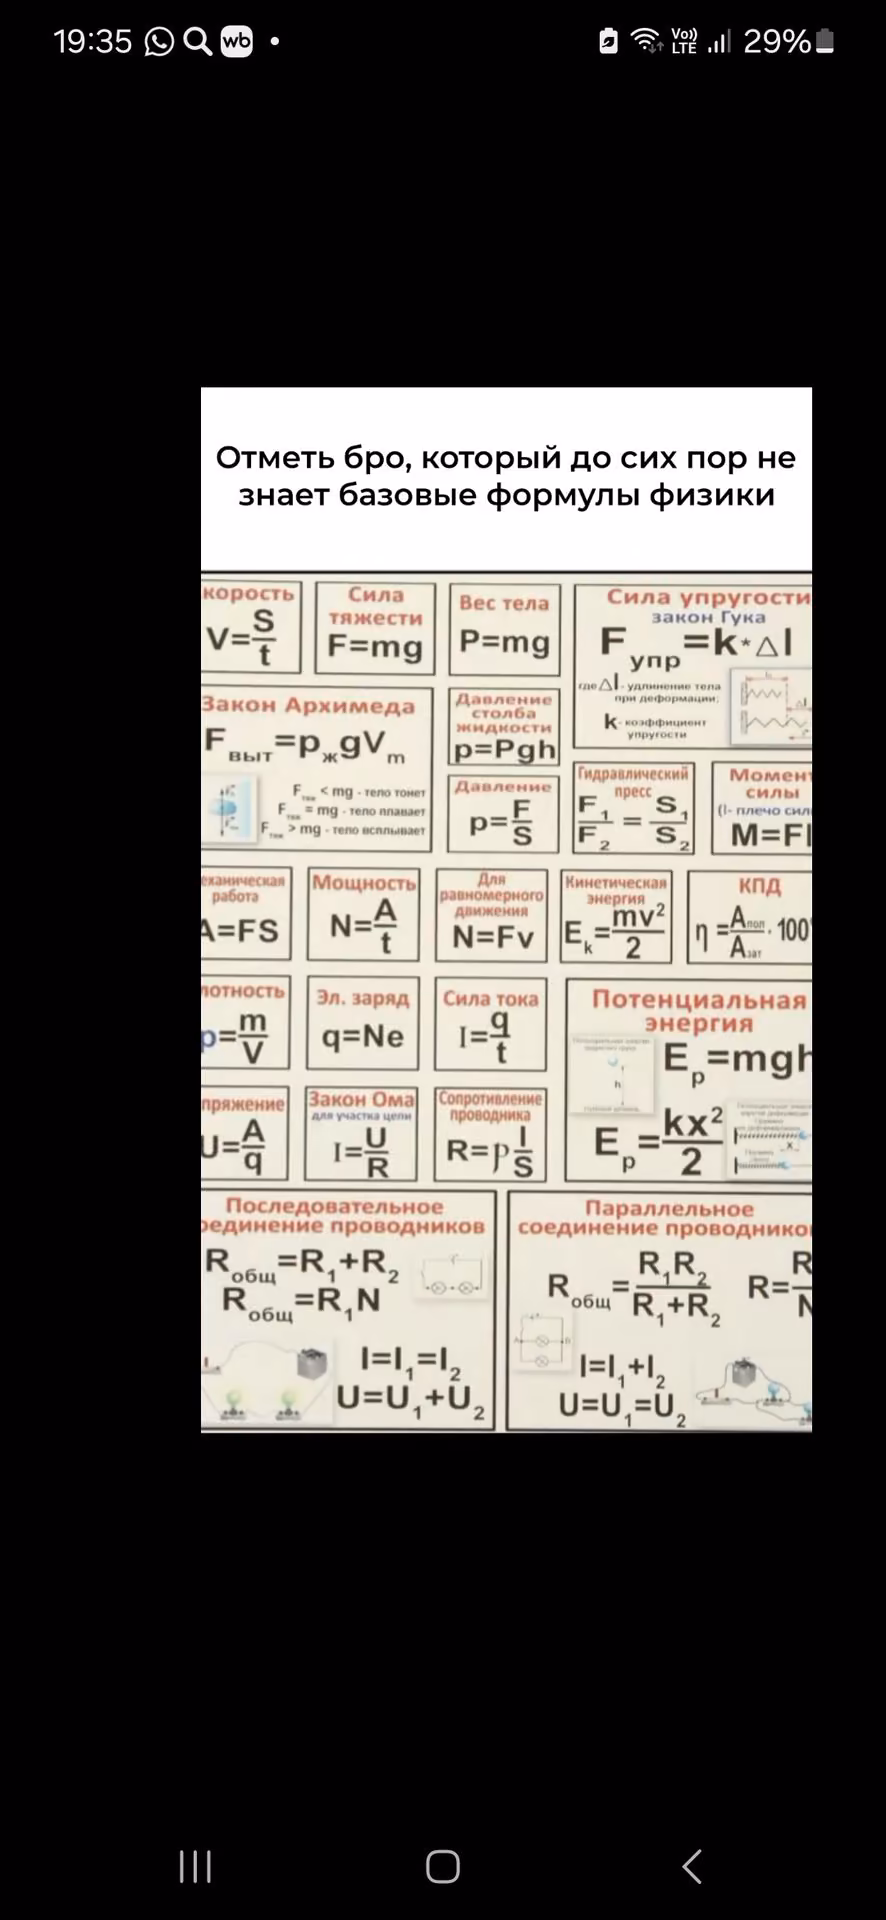 19:35
wb
Vo))
LTE
29%
Отметь бро, который до сих пор не
знает базовые формулы физики
корость
V=S/t
Сила
тяжести
F=mg
Вес тела
P=mg
Сила упругости
закон Гука
Fупр=k*△l
где △l - удлинение тела
при деформации;
k - коэффициент
упругости
Закон Архимеда
Fвыт=pжgVm
< mg - тело тонет
= mg - тело плавает
> mg - тело всплывает
Давление
столба
жидкости
p=Pgh
Давление
p=F/S
Гидравлический
пресс
F1/F2=S1/S2
Момент
силы
(l- плечо сил
M=Fl
еханическая
работа
A=FS
Мощность
N=A/t
Для
равномерного
движения
N=Fv
Кинетическая
энергия
Ek=mv²/2
КПД
η=Aпол/Aзат·100
лотность
p=m/V
Эл. заряд
q=Ne
Сила тока
I=q/t
Потенциальная
энергия
Ep=mgh
h
Ep=kx²/2
x
пряжение
U=A/q
Закон Ома
для участка цепи
I=U/R
Сопротивление
проводника
R=pl/S
Последовательное
оединение проводников
Rобщ=R1+R2
Rобщ=R1N
I=I1=I2
U=U1+U2
Параллельное
соединение проводнико
Rобщ=R1R2/R1+R2
R=R/N
I=I1+I2
U=U1=U2